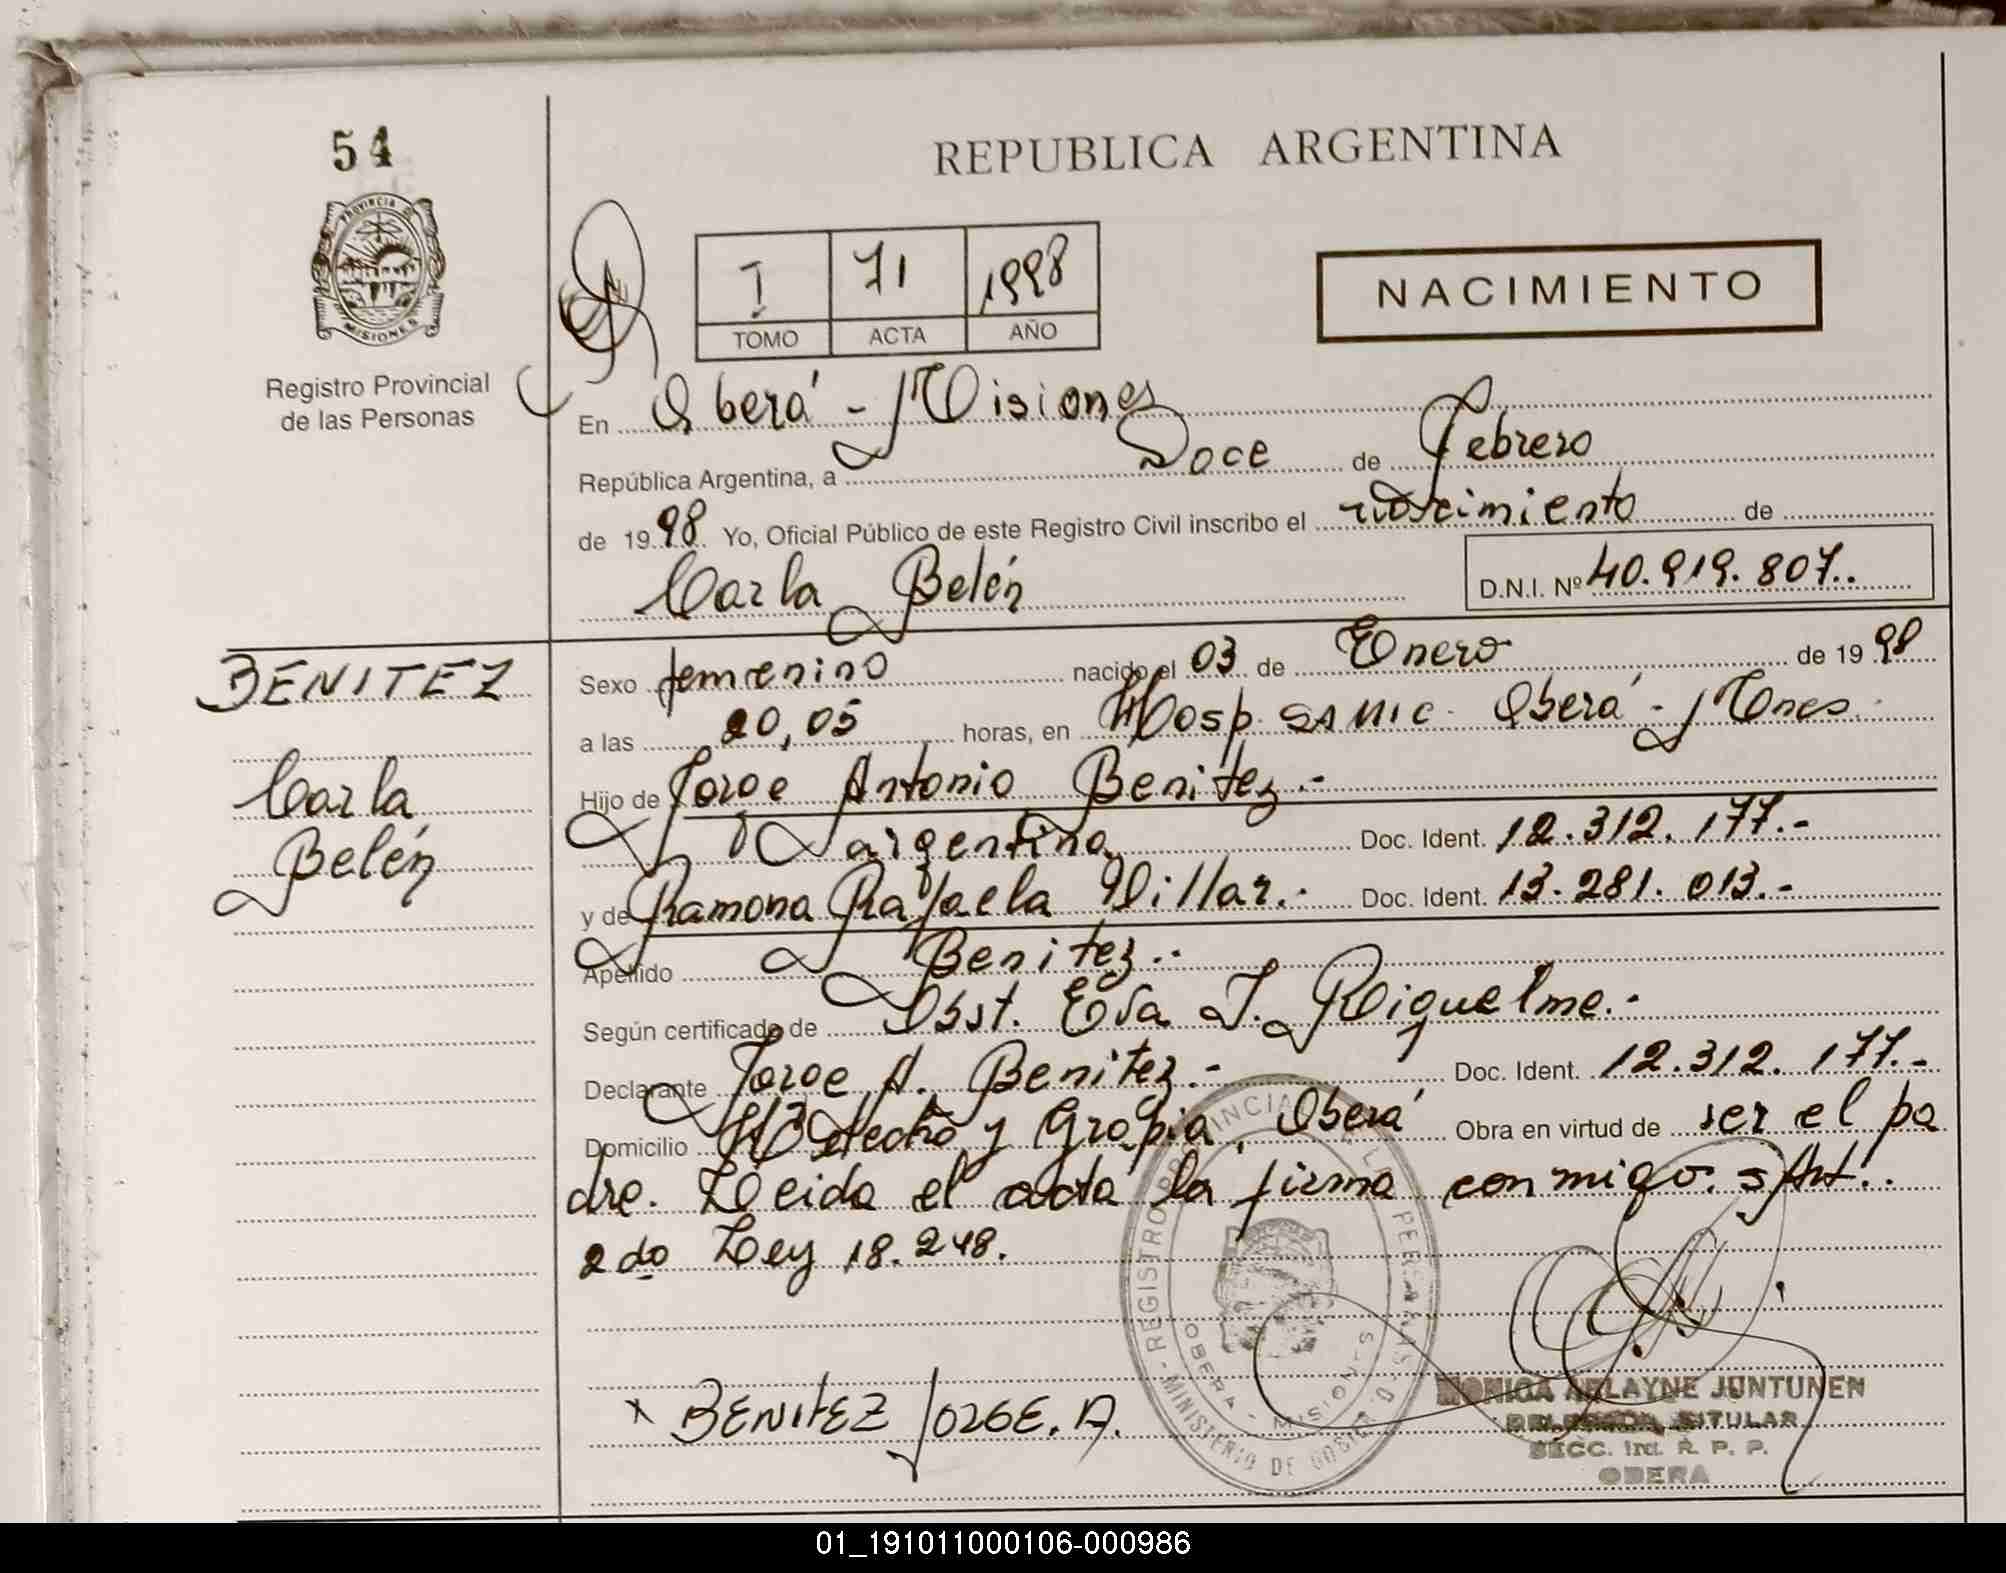 54
REPUBLICA ARGENTINA
PROVINCIA DE
MISIONES
Registro Provincial
de las Personas
I 71 1998
TOMO ACTA AÑO
NACIMIENTO
En Oberá - Misiones
República Argentina, a Doce de Febrero
de 1998 Yo, Oficial Público de este Registro Civil inscribo el nacimiento de
Carla Belén D.N.I. Nº 40.919.807..
BENITEZ
Carla
Belén
Sexo femenino nacido el 03 de Enero de 1998
a las 20,05 horas, en Hosp. SAMIC - Oberá - Mnes.
Hijo de Jorge Antonio Benitez.-
argentina Doc. Ident. 12.312.177.-
y de Ramona Rafaela Villar.- Doc. Ident. 13.281.013.-
Apellido Benitez..
Según certificado de Obst. Eva J. Riquelme.-
Declarante Jorge A. Benitez.- Doc. Ident. 12.312.177.-
Domicilio y Oberá Obra en virtud de ser el pa
dre. Leida el acta la firma conmigo. s/Art..
2do Ley 18.248.
x BENITEZ JORGE. A.
REGISTRO PROVINCIAL DE LAS PERSONAS - MINISTERIO DE GOBIERNO -
OBERA - MISIONES
MONICA JUNTUNEN
TITULAR
SECC. 1ra. R. P. P.
OBERA
01_191011000106-000986